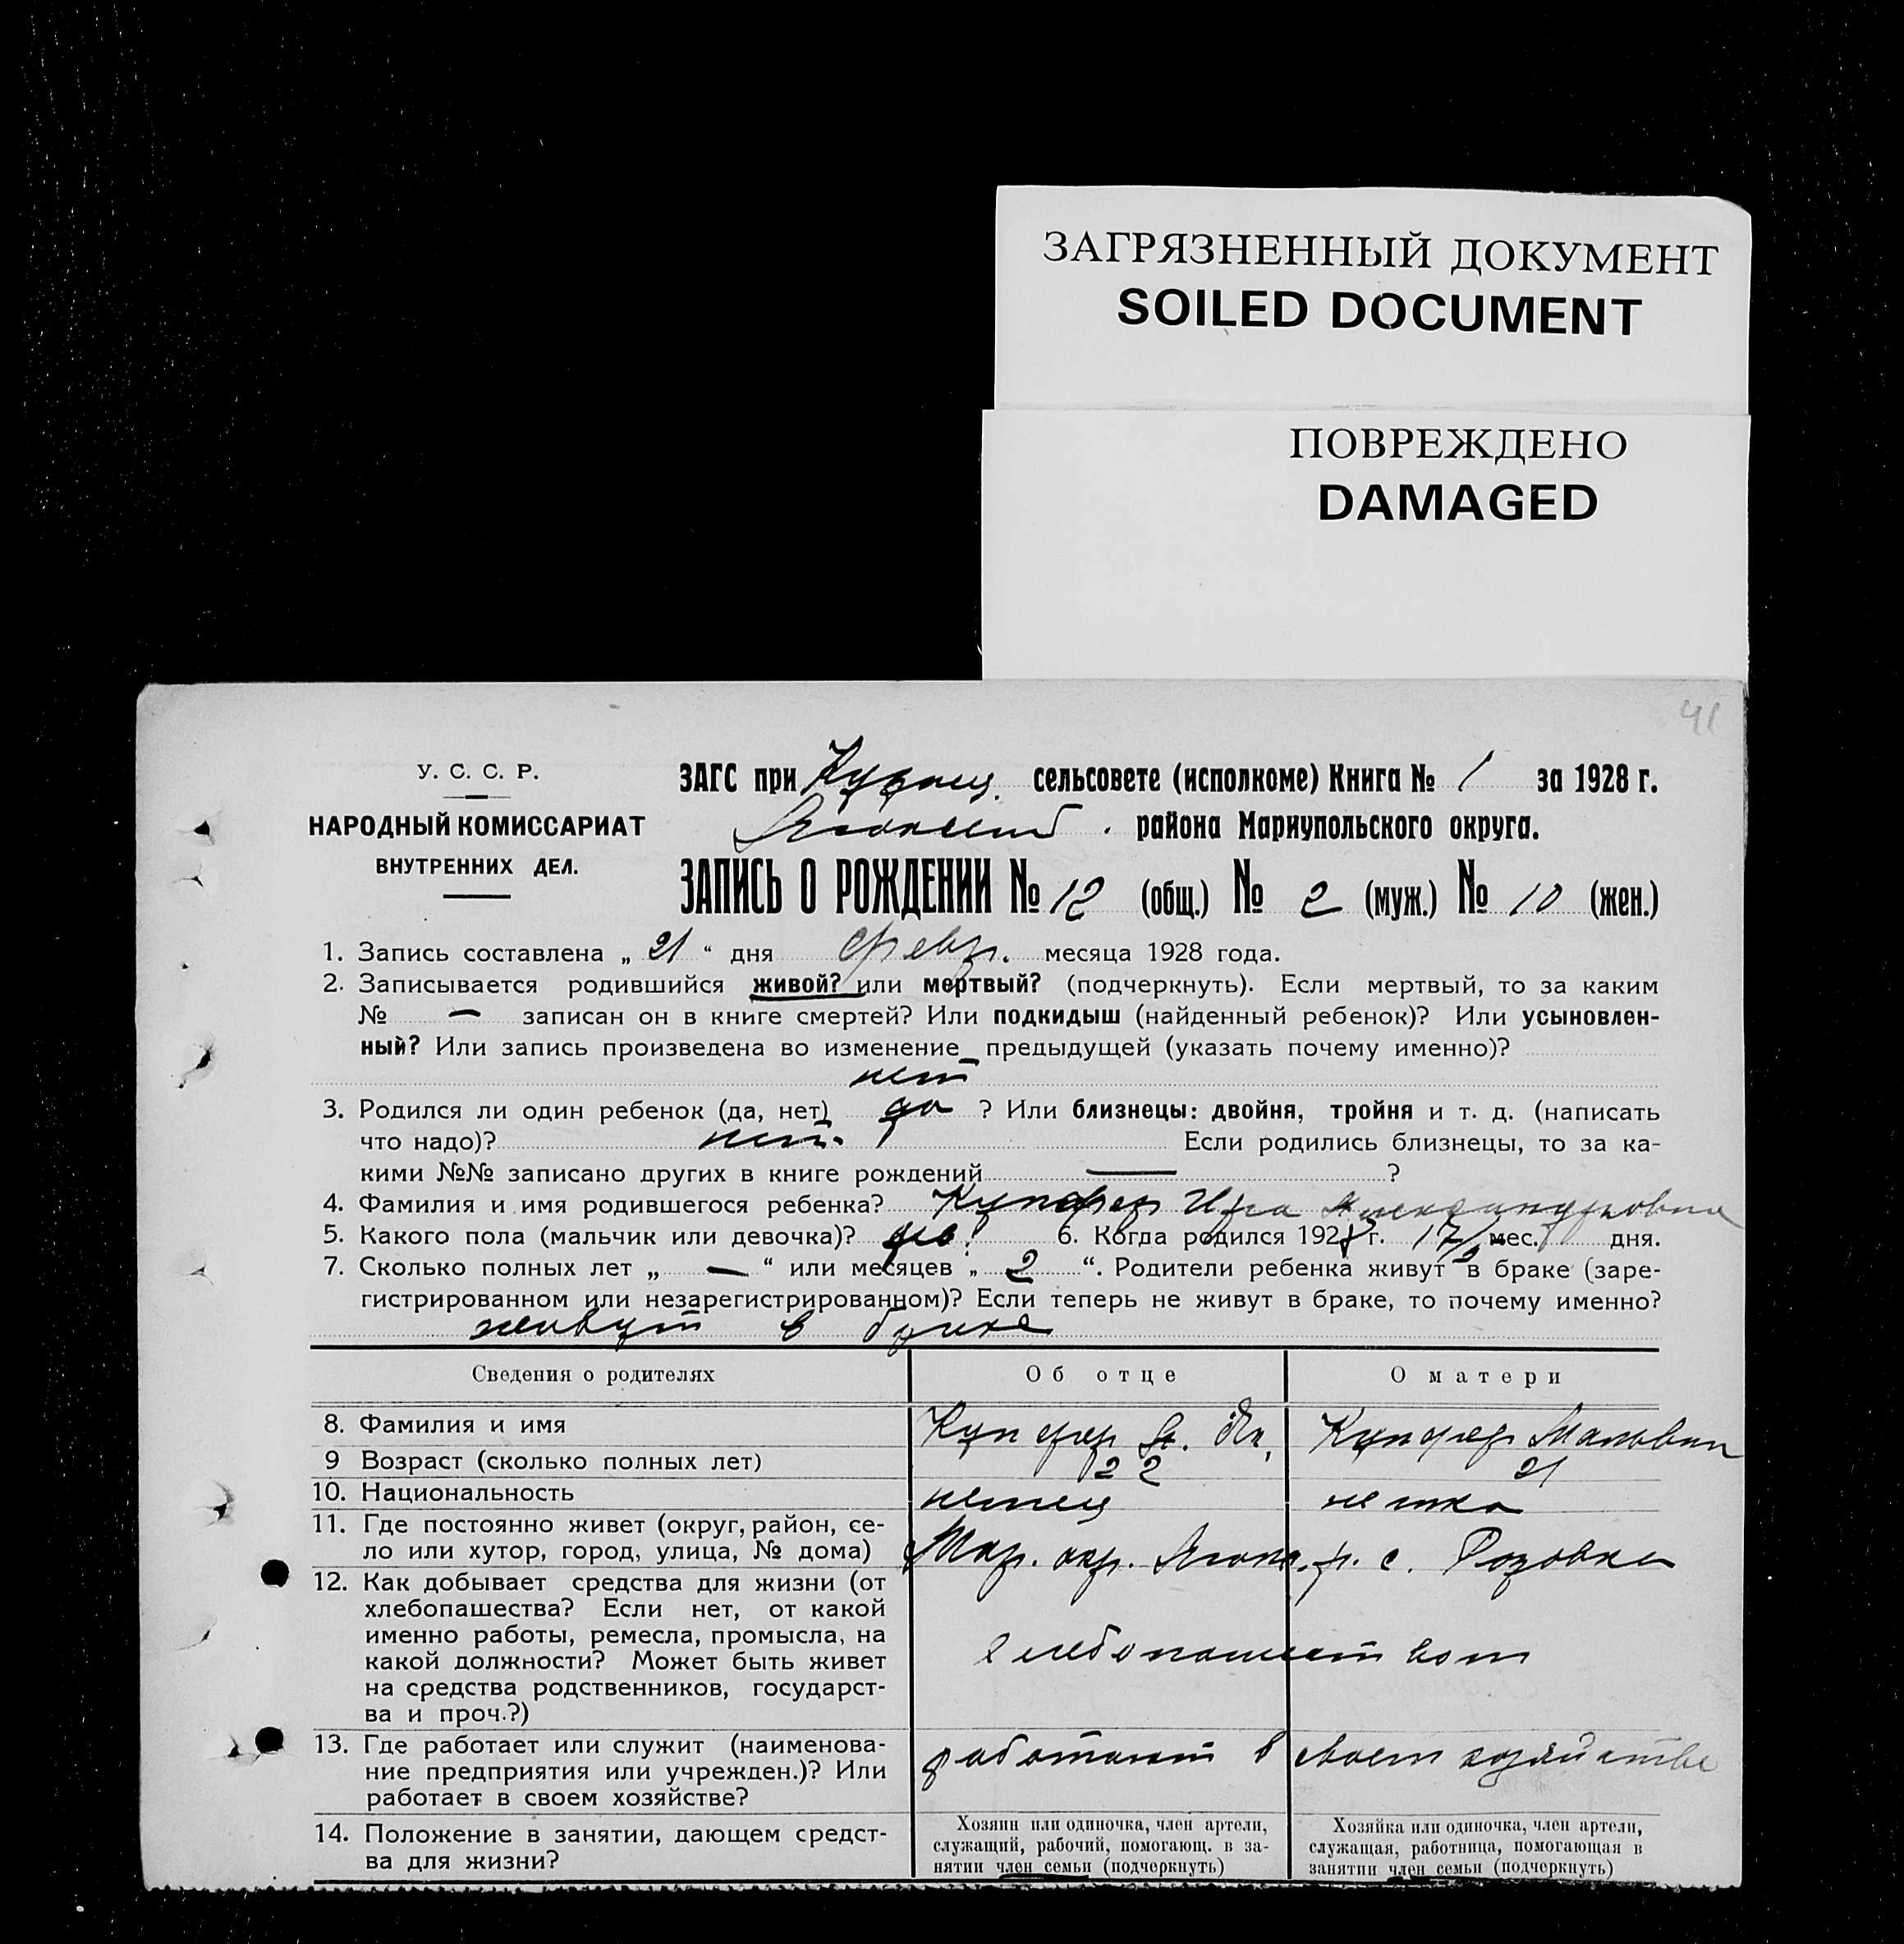 ЗАГРЯЗНЕННЫЙ ДОКУМЕНТ
SOILED DOCUMENT
ПОВРЕЖДЕНО
DAMAGED
41
У. С. С. Р.
НАРОДНЫЙ КОМИССАРИАТ
ВНУТРЕННИХ ДЕЛ.
ЗАГС при сельсовете (исполкоме) Книга № 1 за 1928 г.
района Мариупольского округа.
ЗАПИСЬ О РОЖДЕНИИ № 12 (общ.) № 2 (муж.) № 10 (жен.)
1. Запись составлена „ 21 “ дня февр. месяца 1928 года.
2. Записывается родившийся живой? или мертвый? (подчеркнуть). Если мертвый, то за каким
№ — записан он в книге смертей? Или подкидыш (найденный ребенок)? Или усыновлен-
ный? Или запись произведена во изменение предыдущей (указать почему именно)?
нет
3. Родился ли один ребенок (да, нет) да ? Или близнецы: двойня, тройня и т. д. (написать
что надо)? нет. Если родились близнецы, то за ка-
кими №№ записано других в книге рождений — ?
4. Фамилия и имя родившегося ребенка? Купфер Ирга Александровна
5. Какого пола (мальчик или девочка)? дев. 6. Когда родился 1928 г. 17/ мес. дня.
7. Сколько полных лет „ — “ или месяцев „ 2 “. Родители ребенка живут в браке (заре-
гистрированном или незарегистрированном)? Если теперь не живут в браке, то почему именно?
живут в браке
Сведения о родителях Об отце О матери
8. Фамилия и имя Купфер Купфер Мальвин
9 Возраст (сколько полных лет) 22 21
10. Национальность немец немка
11. Где постоянно живет (округ, район, се-
ло или хутор, город, улица, № дома) Мар. окр. р. с. Розовка
12. Как добывает средства для жизни (от
хлебопашества? Если нет, от какой
именно работы, ремесла, промысла, на
какой должности? Может быть живет
на средства родственников, государст-
ва и проч.?)
хлебопашеством
13. Где работает или служит (наименова-
ние предприятия или учрежден.)? Или
работает в своем хозяйстве?
работают в своем хозяйстве
14. Положение в занятии, дающем средст-
ва для жизни?
Хозяин или одиночка, член артели,
служащий, рабочий, помогающ. в за-
нятии член семьи (подчеркнуть)
Хозяйка или одиночка, член артели,
служащая, работница, помогающая в
занятии член семьи (подчеркнуть)